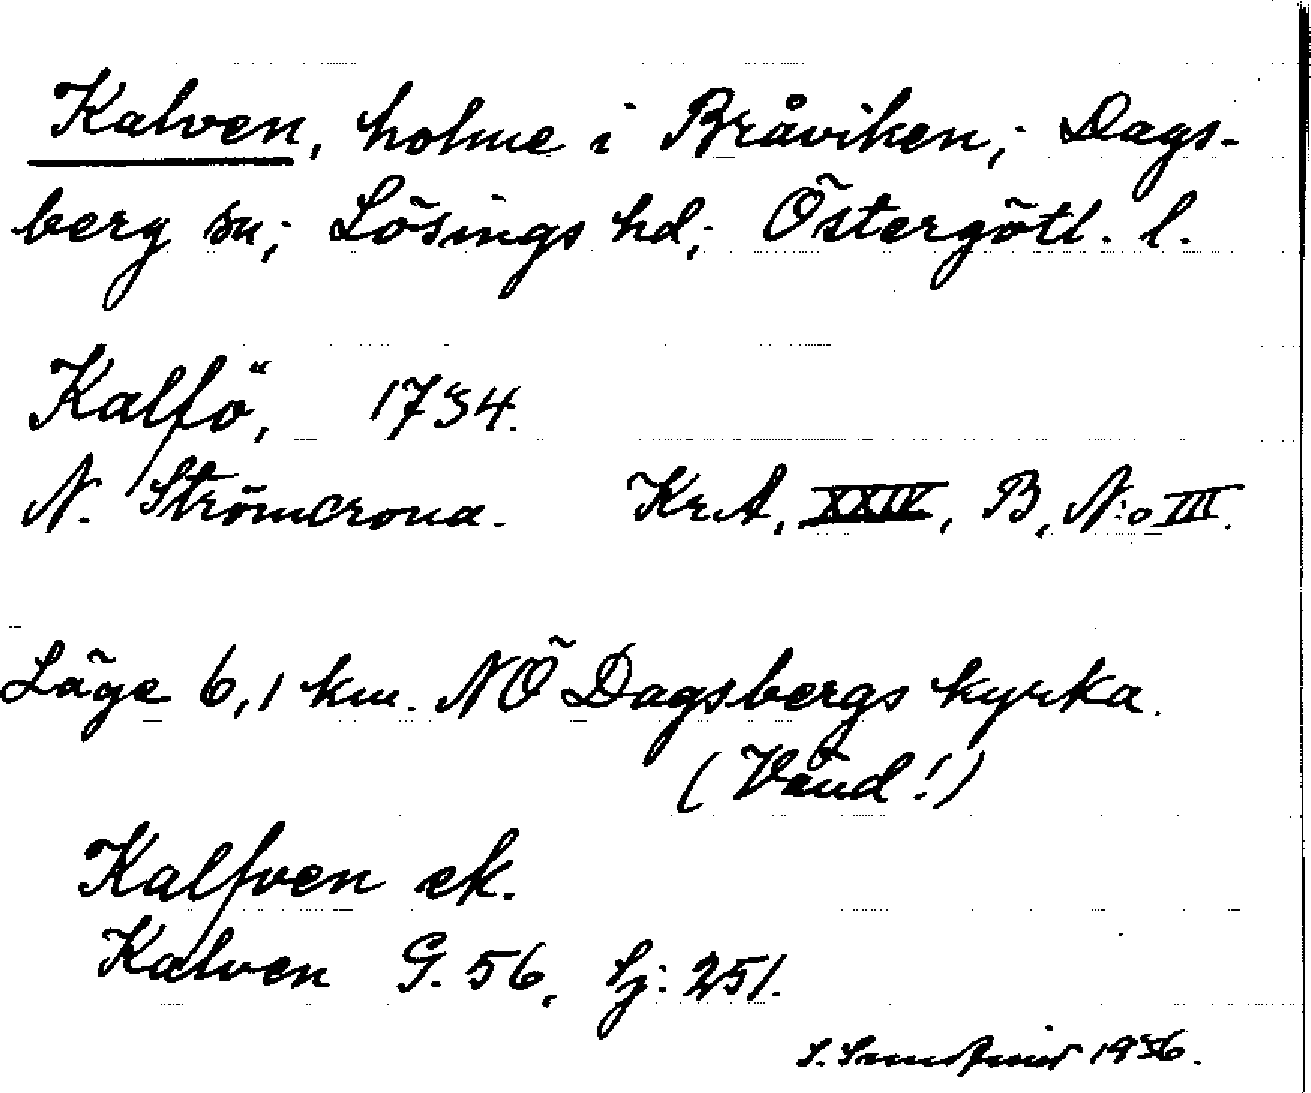 Kalven, holme i Bråviken; Dags-
berg sn; Lösings hd; Östergötl. l.
Kalfö, 1734.
N. Strömcrona. Kr.A. XXIV, B, N:o III.
Läge 6,1 km. NÖ Dagsbergs kyrka.
(Vänd!)
Kalfven ek.
Kalven G. 56, hj: 251.
1936.